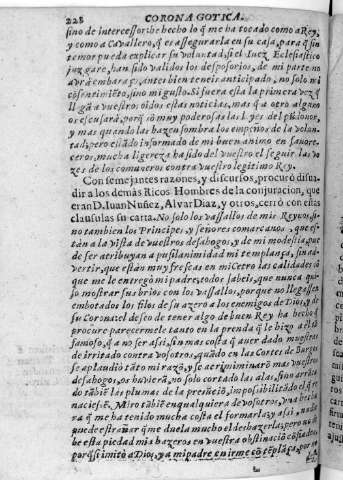 228 CORONA GOTICA.
sino de intercessor: he hecho lo q̃ me ha tocado como a Rey,
y como a Cavallero, q̃ es assegurarla en su casa, para q̃ sin
temor pueda explicar su voluntad, si el Iuez Eclesiastico
juzgare, han sido validos los desposorios, de mi parte no
avrà embaraço, antes bien teneis anticipado, no solo mi
cõsentimiẽto, sino mi gusto. Si fuera esta la primera vez q̃
llegàra a vuestros oidos estas noticias, mas q̃ a otro alguno
os escusarà, porq̃ sõ muy poderosas las Leyes del pũdonor,
y mas quando las hazen sombra los empeños de la volun-
tad, pero estãdo informado de mi buen animo en favore-
ceros, mucha ligereza ha sido del vuestro el seguir las vo
zes de los comuneros contra vuestro legitimo Rey.
Con semejantes razones, y discursos, procurò disua-
dir a los demàs Ricos Hombres de la conjuracion, que
eran D. Iuan Nuñez, Alvar Diaz, y otros, cerrò con estas
clausulas su carta. No solo los vassallos de mis Reynos, si-
no tambien los Principes, y señores comarcanos, que es-
tàn a la vista de vuestros desahogos, y de mi modestia, que
de ser atribuyan a pusilanimidad mi templança, sin ad-
vertir, que estàn muy frescas en mi Cetro las calidades cõ
que me le entregò mi padre, todos sabeis, que nunca qui-
so mostrar sus brios con los vassallos, por que no llegassen
embotados los filos de su azero a los enemigos de Dios, y de
su Corona: el deseo de tener algo de buen Rey ha hecho q̃
procure parecermele tanto en la prenda q̃ le hizo a el tã
famoso, q̃ a no ser assi, sin mas costa q̃ aver dado muestras
de irritado contra vosotros, quãdo en las Cortes de Burgos
se aplaudiò tãto mi razõ, y se acriminimarõ mas vuestros
desahogos, os huviera, no solo cortado las alas, sino arrãca
do tãbiẽ las plumas de la presunciõ, impossibilitãdo el q̃ re
naciessẽ. Miro tãbiẽ en qualquiera de vosotros, vna he-
q̃ me ha tenido mucha costa el formarla; y assi, nadie
puede estrañar q̃ me duela mucho el deshazerla, pero no de-
be esta piedad mia hazeros en vuestra obstinaciõ cõfiados,
porq̃ si imitò a Dios, y a mi padre en irme cõ tẽplãça, por no